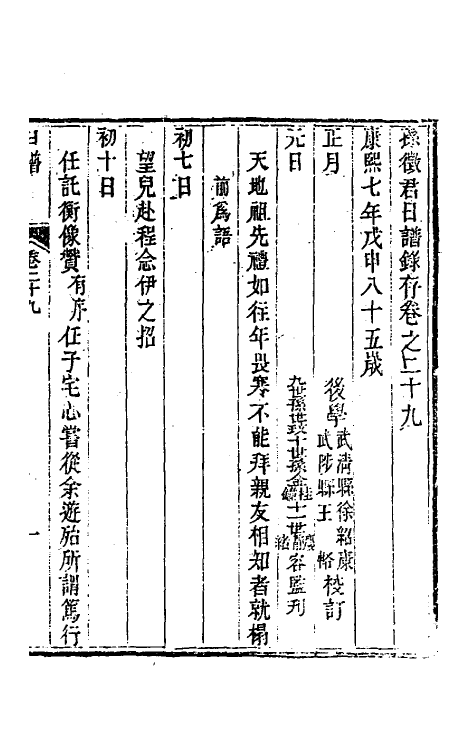 孫徵君日譜錄存卷之二十九
康熙七年戊申八十五歲
正月
後學
武清縣徐紹康
武陟縣王 輅
校訂
元日
九世孫世玟十世孫
桂
十一世
容監刊
天地祖先禮如往年畏寒不能拜親友相知者就榻
前為語
初七日
望兒赴程念伊之招
初十日
任託衡像贊有序任子宅心嘗從余遊殆所謂篤行
日譜
卷二十九
一